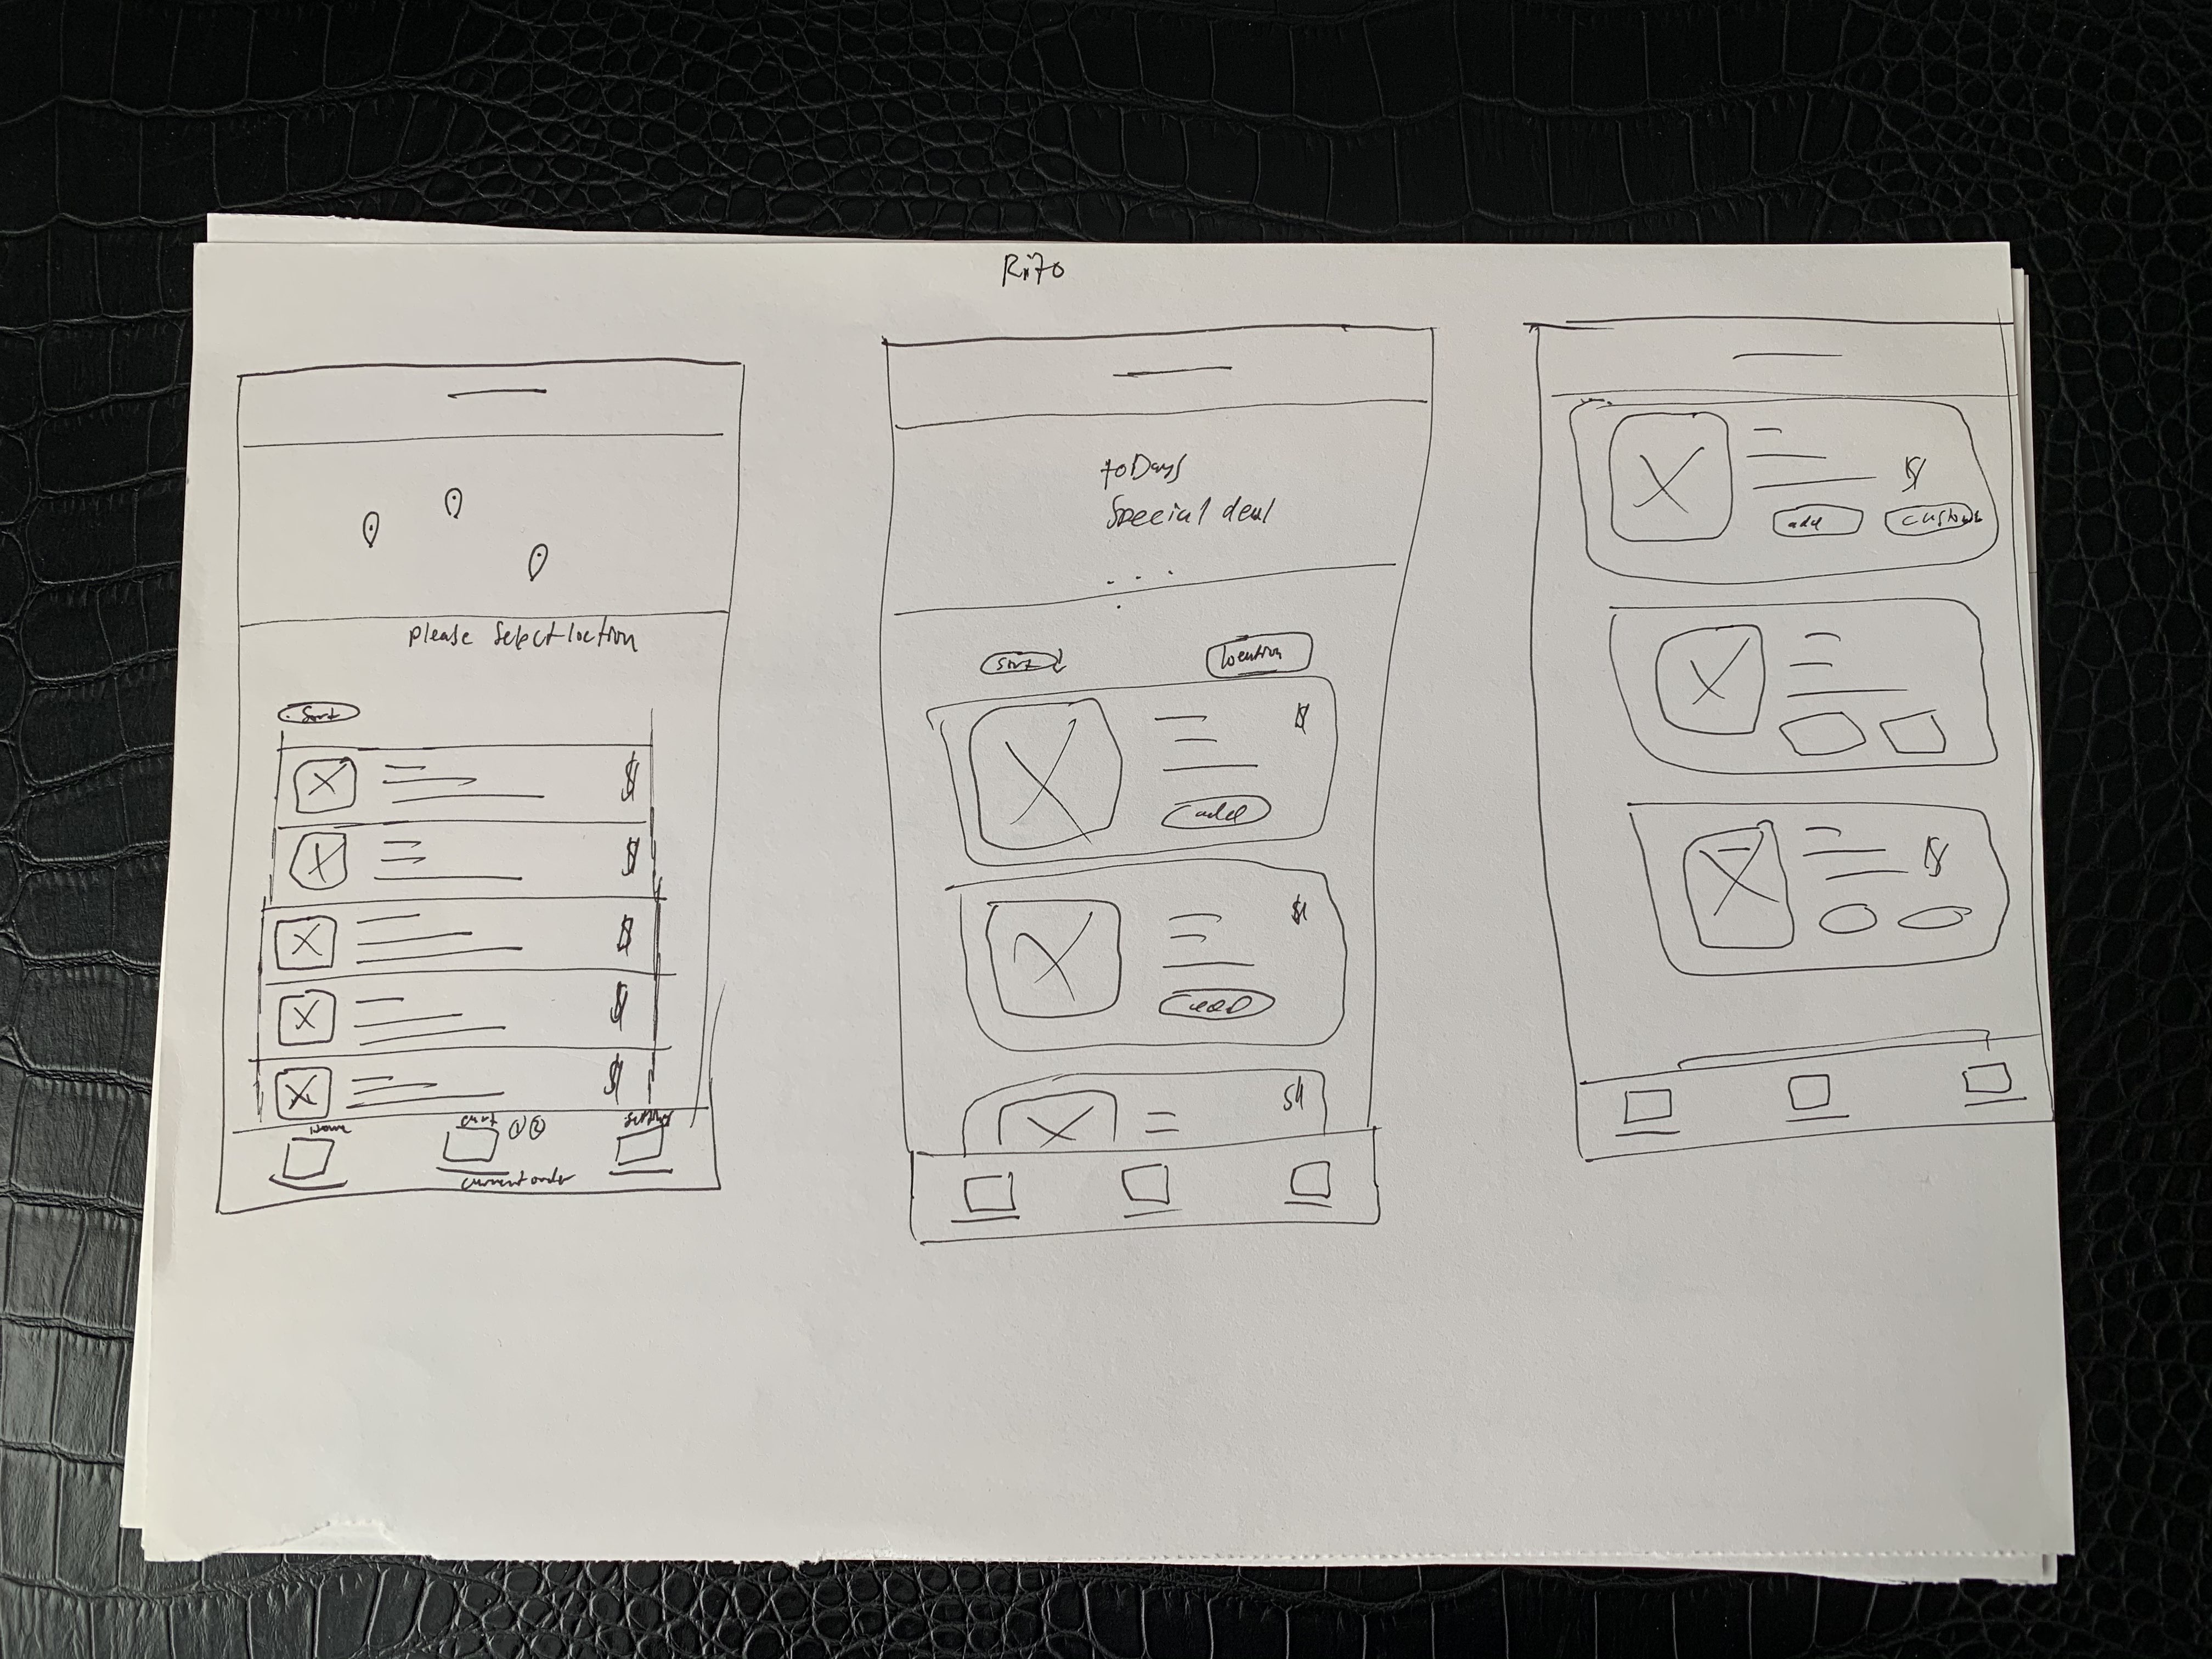 Rito
please select loction
Sort
$
$
$
$
$
Home
cart 1 2
settings
current order
toDays
Special deal
...
Sort
location
$
add
$
add
$
$
add
custom
$